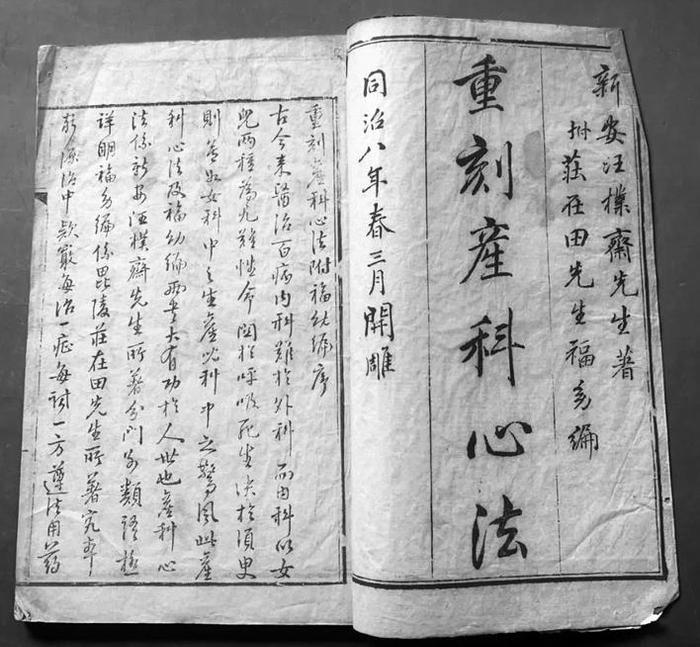 新安汪樸齋先生著
坿莊在田先生福幼編
重刻産科心法
同治八年春三月開雕
重刻産科心法附福幼編序
古今来醫治百病内科難於外科而内科以女
兒兩種為尤難性命関於呼吸死生决於須臾
則莫如女科中之生産兒科中之驚風此産
科心法及福幼編两書大有功於人世也産科心
法係新安汪樸齋先生所著分门別類語極
詳明福幼編係毘陵莊在田先生所著究本
源治中竅每治一症每試一方遵法用药